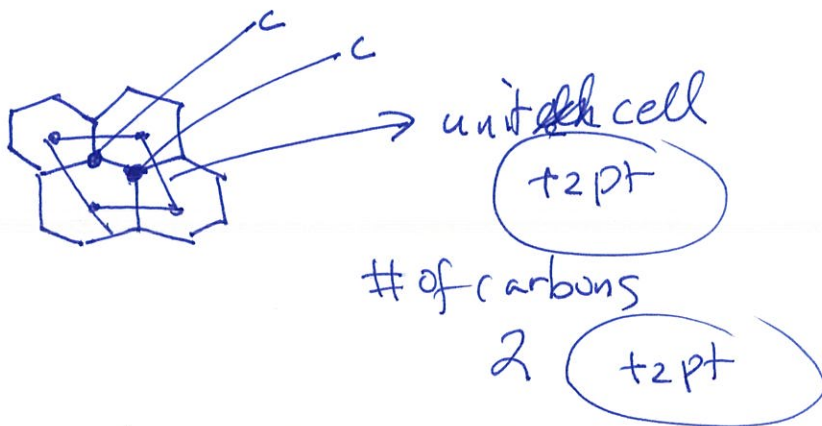 C
C
unit cell
+2pt
# of carbons
2 +2pt